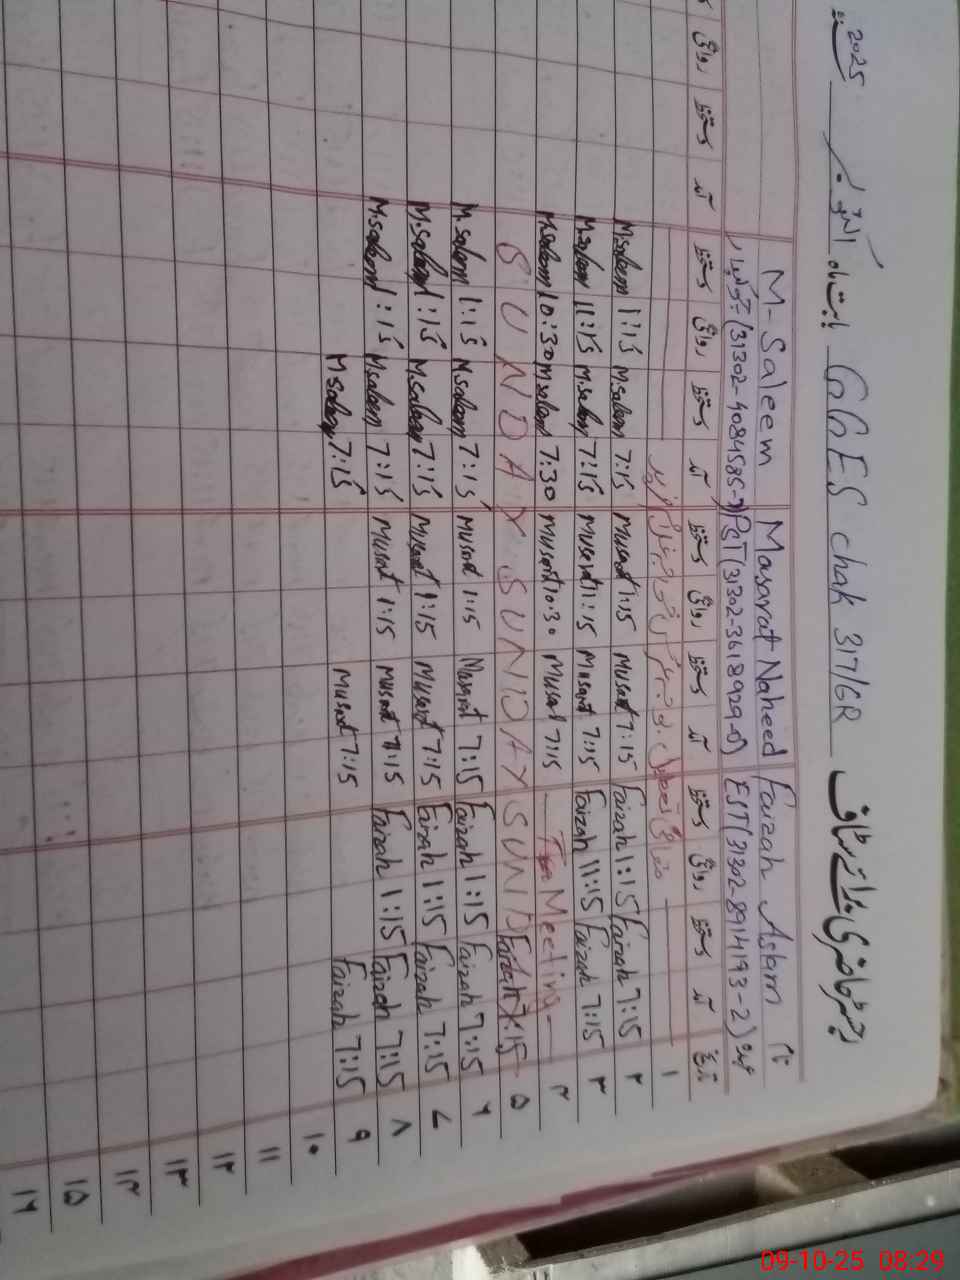 رجسٹر حاضری برائے سٹاف GGES chak 317/6R بابت ماہ اکتوبر 2025
نام Faizah Aslam Masarat Naheed M-Saleem
عہدہ EST(31302-8914193-2) PST(31302-3618929-0) چوکیدار (31302-4084585-7)
تاریخ آمد دستخط روانگی دستخط آمد دستخط روانگی دستخط آمد دستخط روانگی دستخط آمد دستخط روانگی
۱
۲ Faizah 7:15 Faizah 1:15 Musarat 7:15 Musarat 1:15 M.saleem 7:15 M.saleem 1:15
۳ Faizah 7:15 Faizah 11:15 Musarat 7:15 Musarat 11:15 M.saleem 7:15 M.saleem 11:15
۴ Meeting Musarat 7:15 Musarat 10:30 M.saleem 7:30 M.saleem 10:30
۵ Faizah 7:15 SUNDAY SUNDAY SUND
۶ Faizah 7:15 Faizah 1:15 Musarat 7:15 Musarat 1:15 M.saleem 7:15 M.saleem 1:15
۷ Faizah 7:15 Faizah 1:15 Musarat 7:15 Musarat 1:15 M.saleem 7:15 M.saleem 1:15
۸ Faizah 7:15 Faizah 1:15 Musarat 7:15 Musarat 1:15 M.saleem 7:15 M.saleem 1:15
۹ Faizah 7:15 Musarat 7:15 M.saleem 7:15
۱۰
۱۱
۱۲
۱۳
۱۴
۱۵
۱۶
09-10-25 08:29